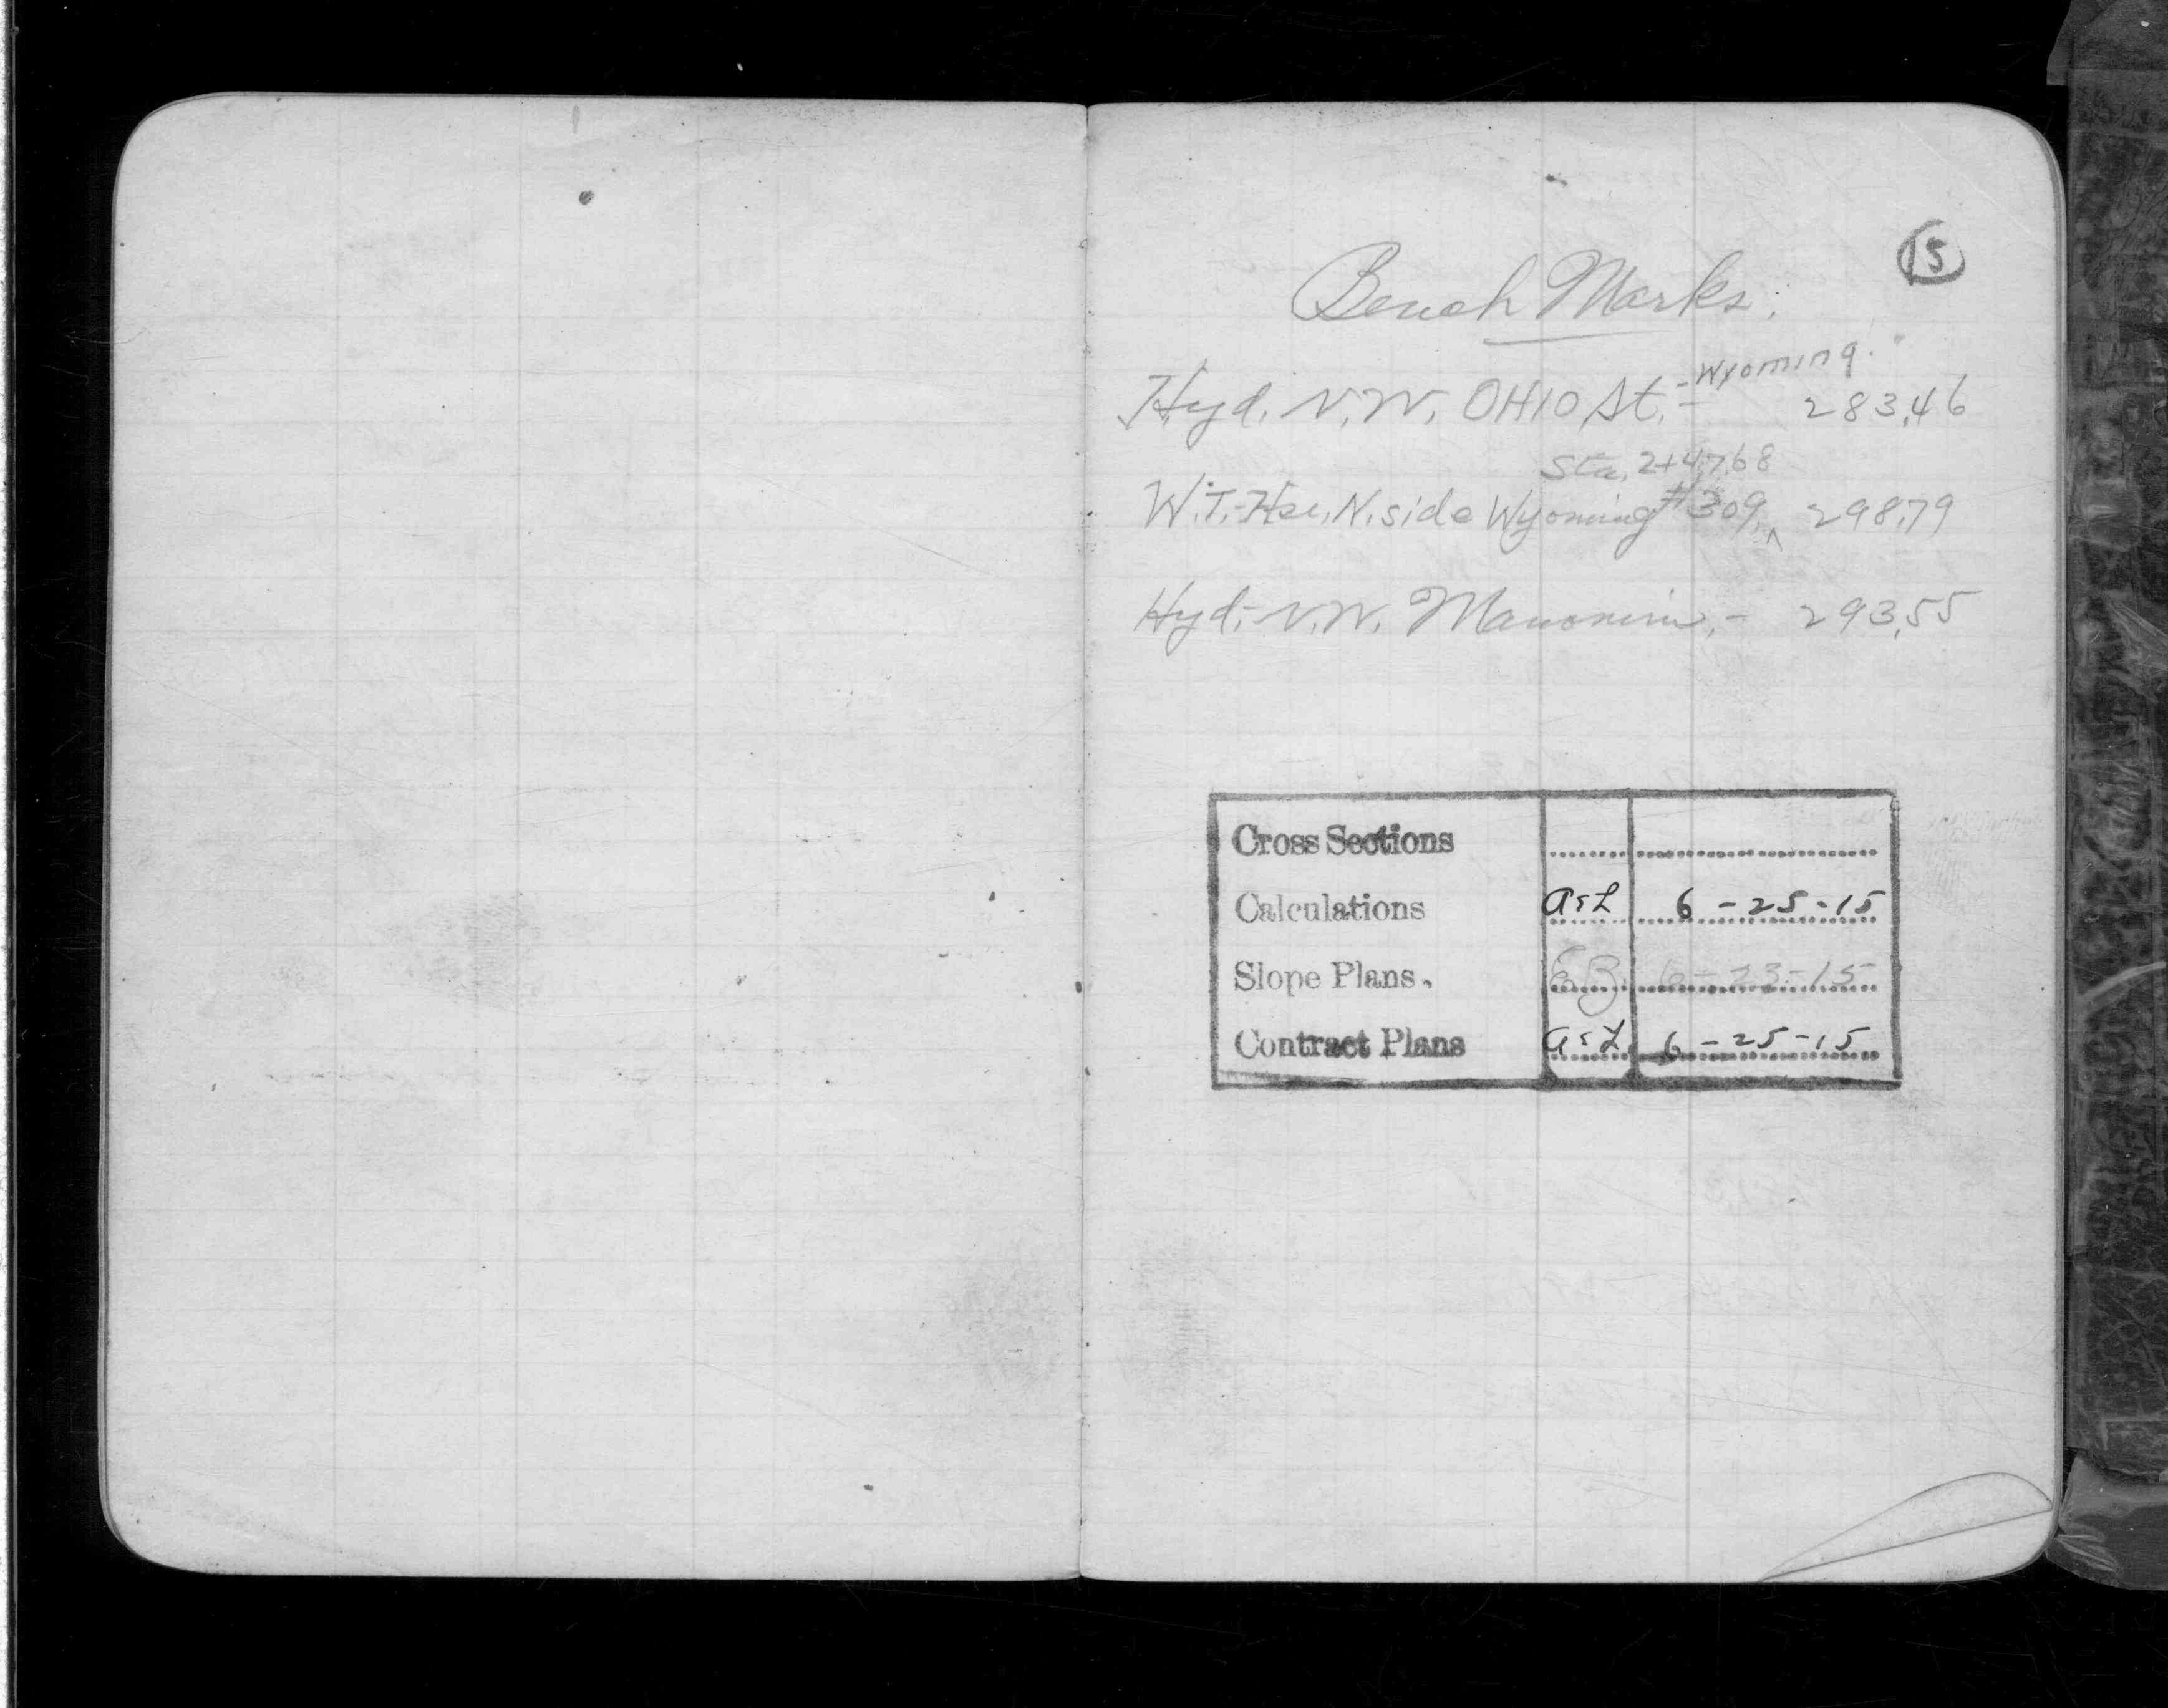 15
Bench Marks:
Wyoming.
Hyd. N.W. OHIO St. - 283.46
Sta. 2+47.68
W.T.-Hse. N. side Wyoming #309, ^ 298.79
Hyd.- N.W. - 293.55
Cross Sections
Calculations 6-25-15
Slope Plans. EB 6-23-15
Contract Plans 6-25-15